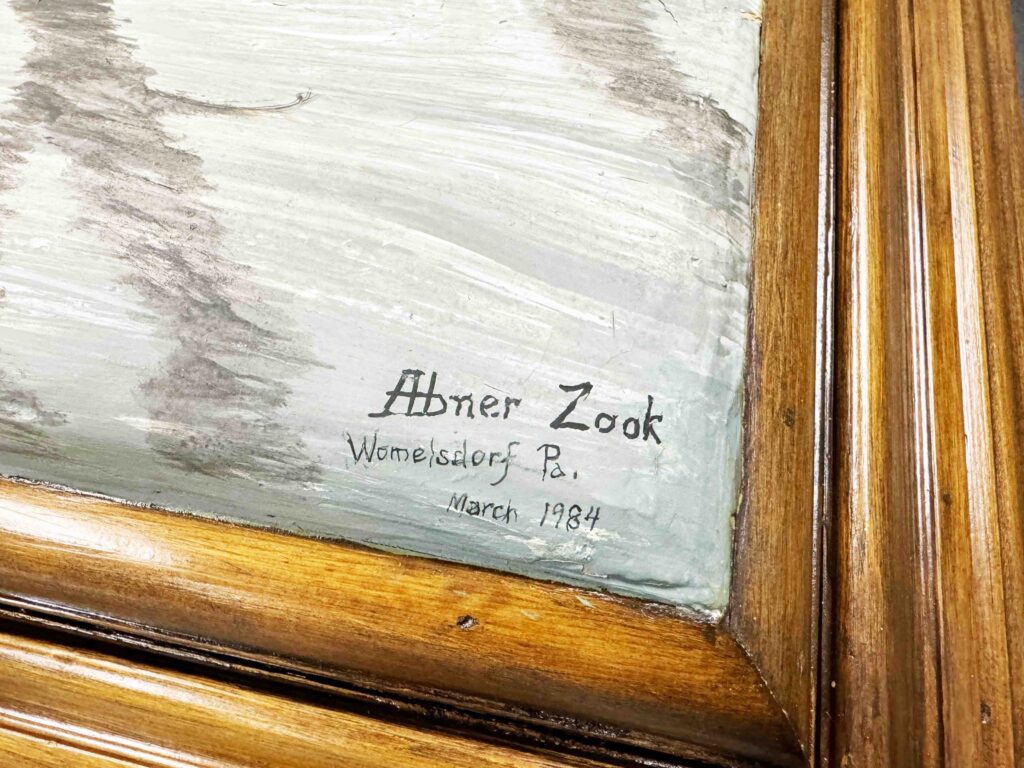 Abner Zook
Womelsdorf Pa.
March 1984